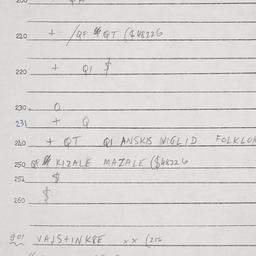 210 + /QF QT ($48226
220 + QI $
230 O
231 + Q
240 + QT QI ANSKIS NIGLID FOLKLOR
250 QF KIZALE MAZALE ($48226
252 $
260 $
VAJSTINKRE xx (256